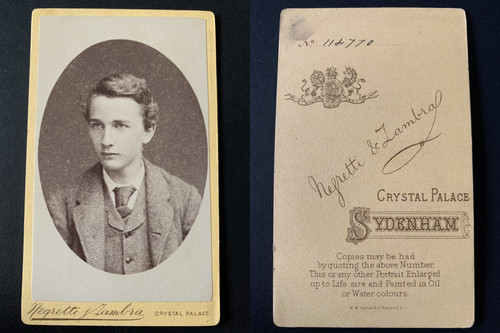 Negretti & Zambra CRYSTAL PALACE
No 114770
Negretti & Zambra
CRYSTAL PALACE
SYDENHAM
Copies may be had
by quoting the above Number.
This or any other Portrait Enlarged
up to Life size and Painted in Oil
or Water colours.